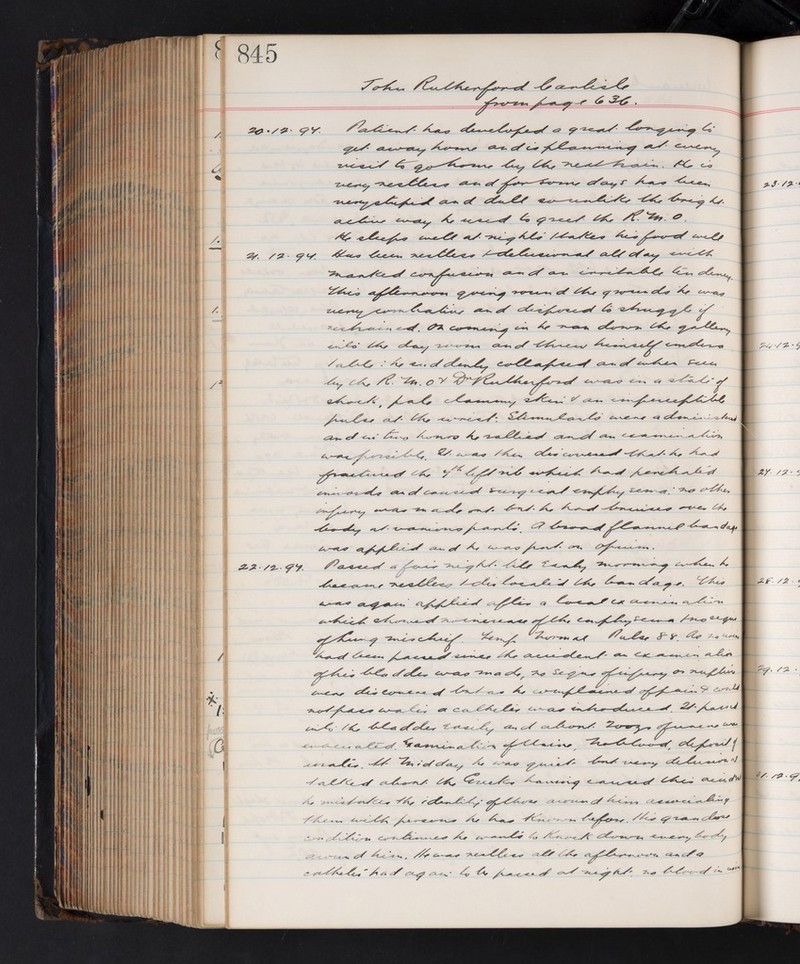 845
John Rutherford Carlisle
from page 636.
20.12.94. Patient has developed a great longing to
get away home and is planning at every
visit to go home by the next train. He is
very restless and for some days has been
very stupid and dull so unlike the bright
active way he used to greet the R.M.O.
He sleeps well at nights & takes his food well
21.12.94. Has been restless & delusional all day with
marked confusion and an irritable tendency.
This afternoon going round the grounds he was
very combative and disposed to struggle if
restrained. On coming in he ran down the gallery
into the day room and threw himself under a
table: he suddenly collapsed and when seen
by the R.M.O & Dr Rutherford was in a state of
shock, pale clammy skin & an imperceptible
pulse at the wrist. Stimulants were administered
and in two hours he rallied and an examination
was possible. It was then discovered that he had
fractured the left rib which had penetrated
inwards and caused surgical emphysema: no other
injury was made out but he had bruises over the
body at various parts. A broad flannel bandage
was applied and he was put on opium.
22.12.94. Passed a fair night till early morning when he
became restless & dislocated the bandage. This
was again applied after a local examination
which showed no increase of the emphysema & no signs
of lung mischief. Temp. Normal Pulse 88. As no urine
had been passed since the accident an examination
of his bladder was made, no signs of injury or rupture
were discovered but as he complained of pain & could
not pass water a catheter was introduced. It passed
into the bladder easily and about 20ozs of urine was
evacuated. Examination of Urine, No blood, deposit
urates. At Mid day he was quiet but very delusional
talked about the Greeks having caused this accident
he mistakes the identity of those around him associating
them with persons he has known before. His grandiose
condition continues he wants to knock down every body
around him. He was restless all the afternoon and a
catheter had again to be passed at night. no blood in urine
23.12.
24.12.9
27.12.9
28.12.
29.12.
31.12.9